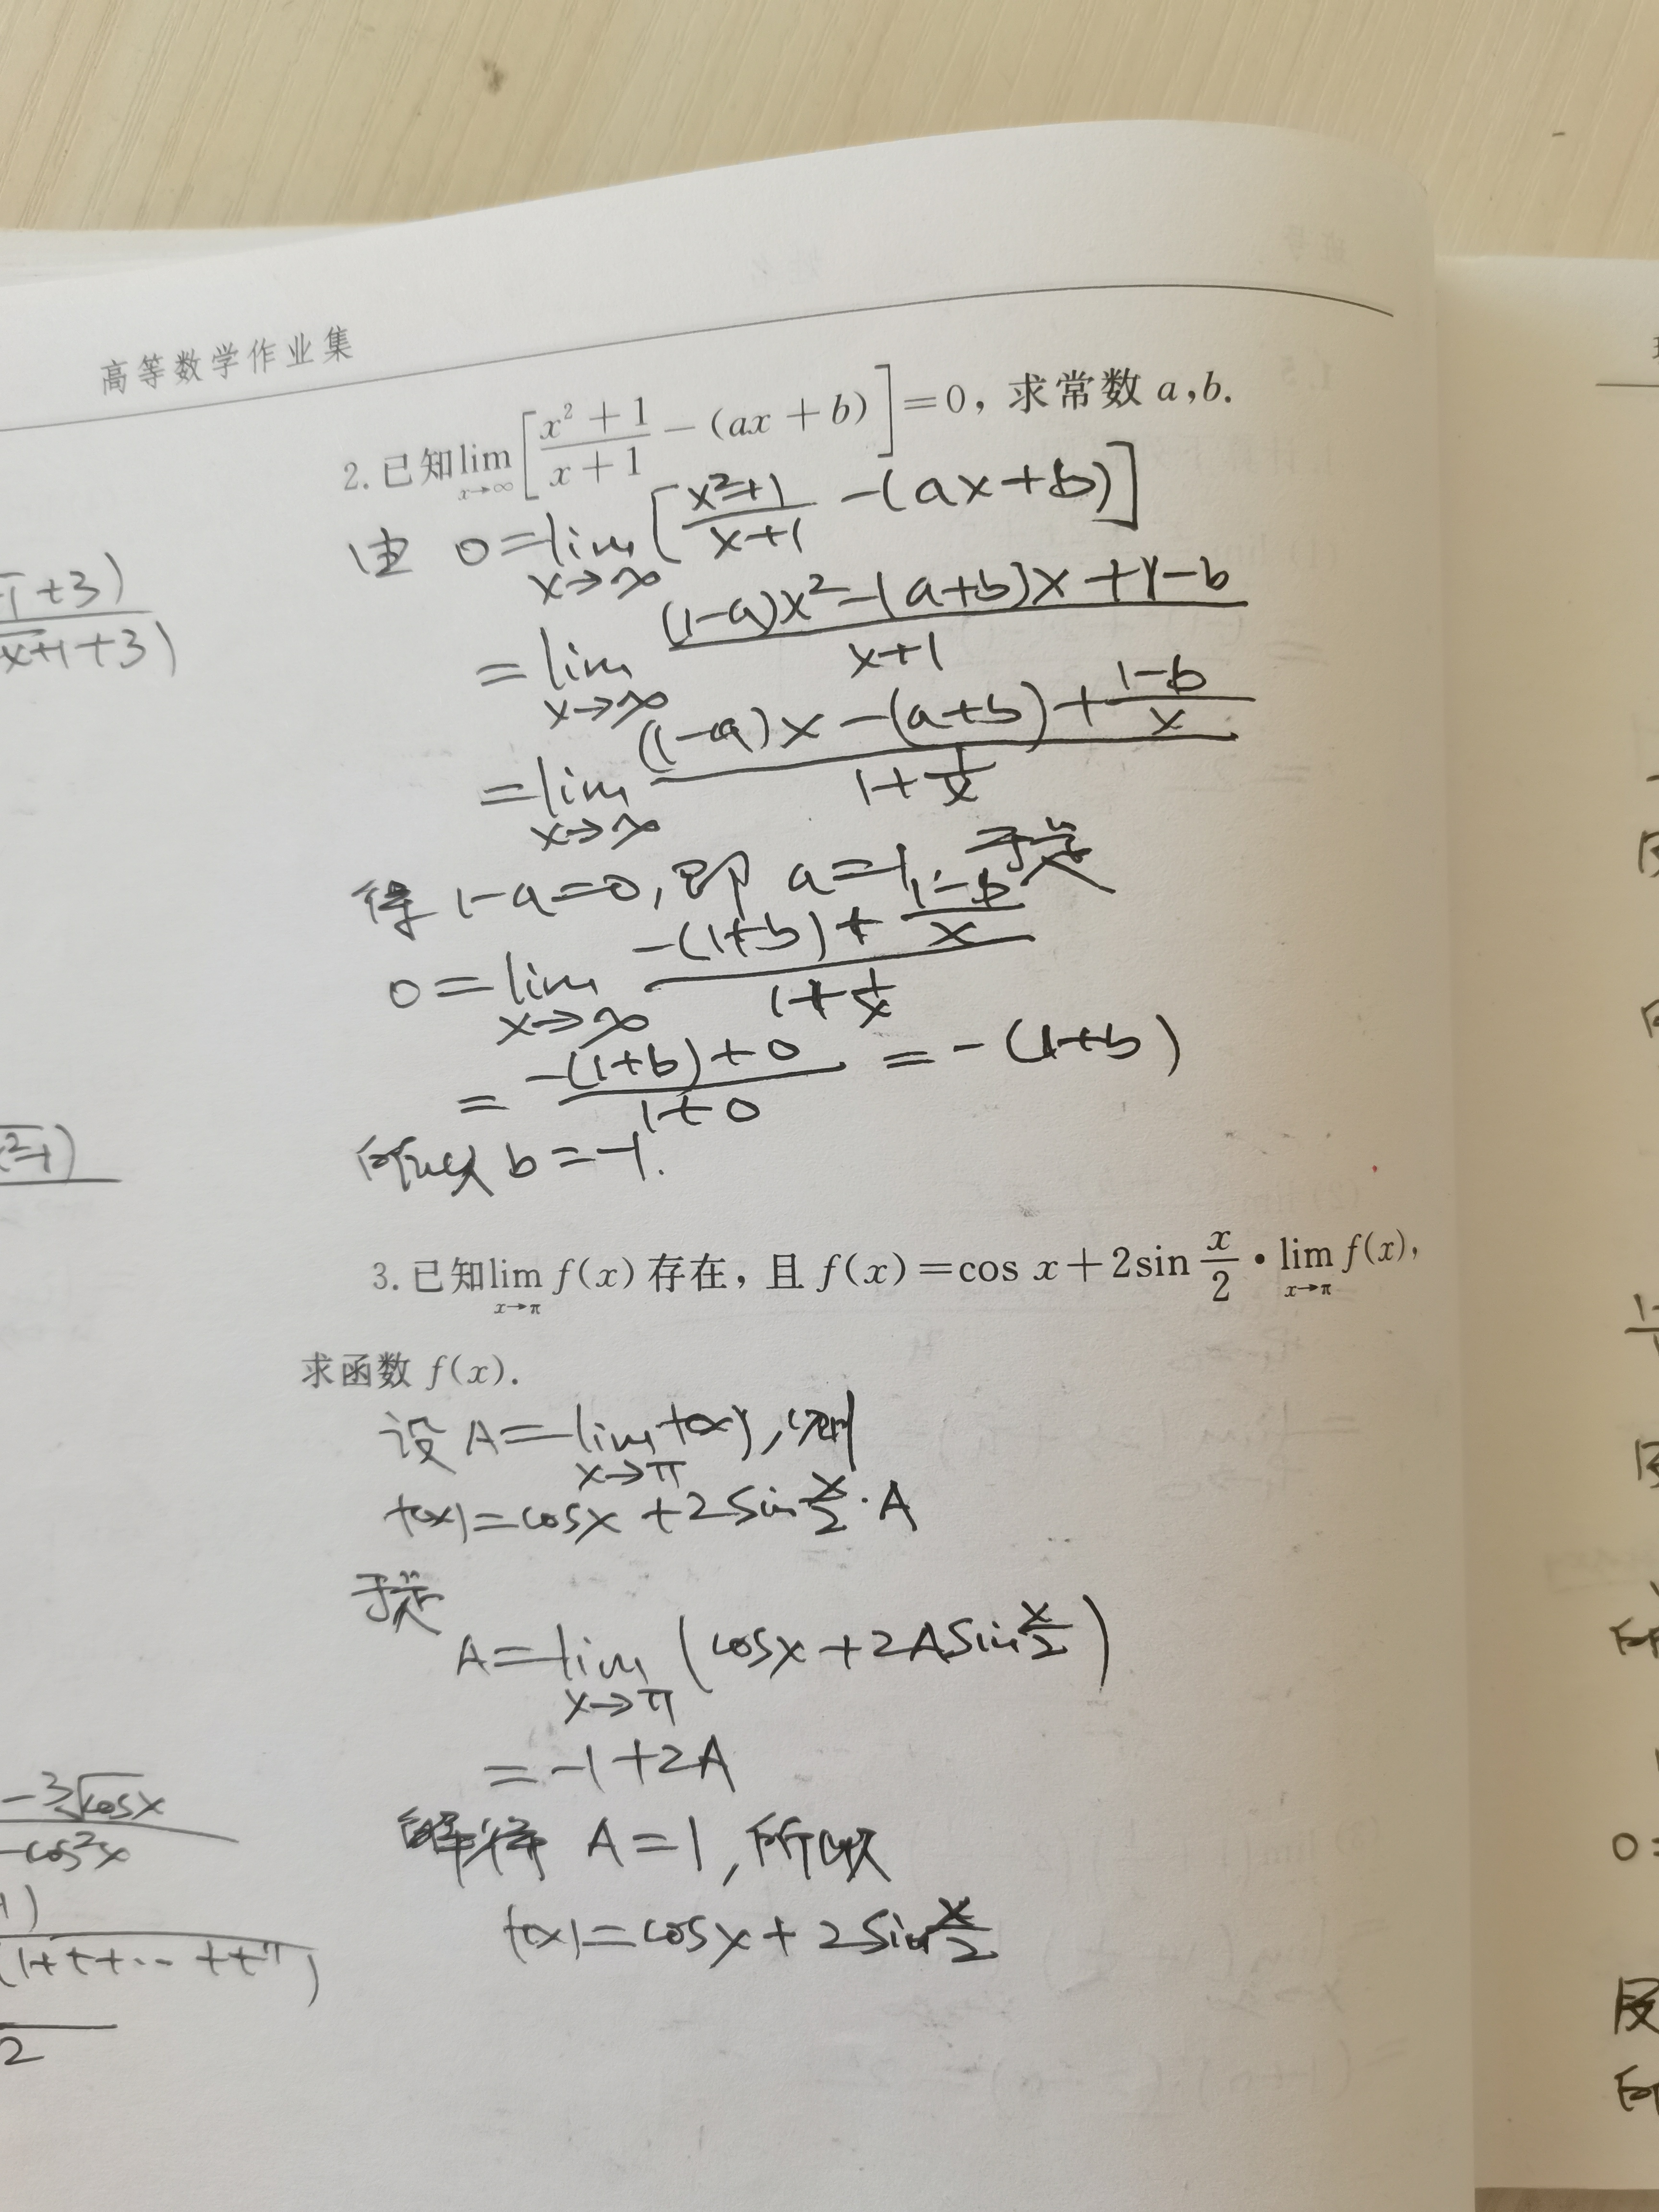 高等数学作业集
2.已知lim_{x→∞}[(x²+1)/(x+1)-(ax+b)]=0, 求常数 a,b.
由 0=lim_{x→∞}[(x²+1)/(x+1)-(ax+b)]
=lim_{x→∞} ((1-a)x²-(a+b)x+1-b)/(x+1)
=lim_{x→∞} ((1-a)x-(a+b)+(1-b)/x)/(1+1/x)
得 1-a=0,即 a=1. 于是
0=lim_{x→∞} (-(1+b)+(1-b)/x)/(1+1/x)
=(-(1+b)+0)/(1+0)=-(1+b)
所以 b=-1.
3.已知lim_{x→π} f(x)存在,且 f(x)=cos x+2sin x/2·lim_{x→π} f(x),
求函数 f(x).
设 A=lim_{x→π} f(x),则
f(x)=cosx+2sin x/2·A
于是
A=lim_{x→π}(cosx+2Asin x/2)
=-1+2A
解得 A=1,所以
f(x)=cosx+2sin x/2
+3)
x+1+3)
-3√cosx
-cos²x
(1+t+…+tⁿ)
2
0=